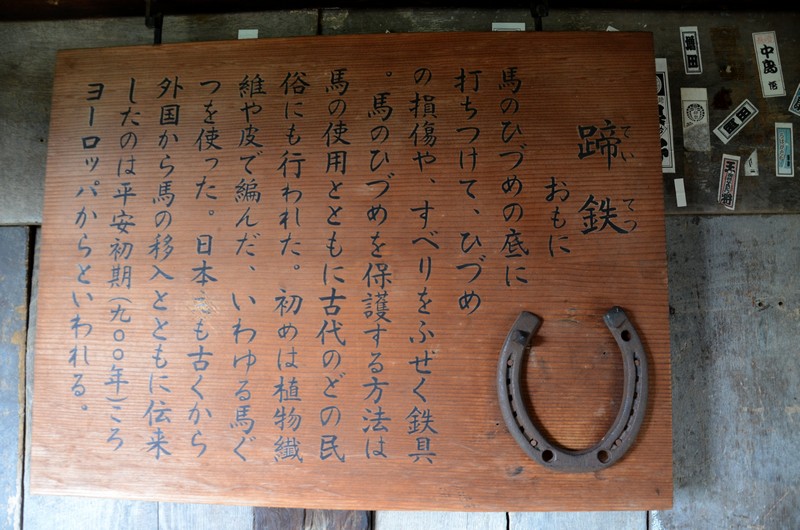 蹄鉄
てい てつ
おもに
馬のひづめの底に
打ちつけて、ひづめ
の損傷や、すべりをふせぐ鉄具
。馬のひづめを保護する方法は
馬の使用とともに古代のどの民
俗にも行われた。初めは植物繊
維や皮で編んだ、いわゆる馬ぐ
つを使った。日本でも古くから
外国から馬の移入とともに伝来
したのは平安初期(九〇〇年)ころ
ヨーロッパからといわれる。
中島